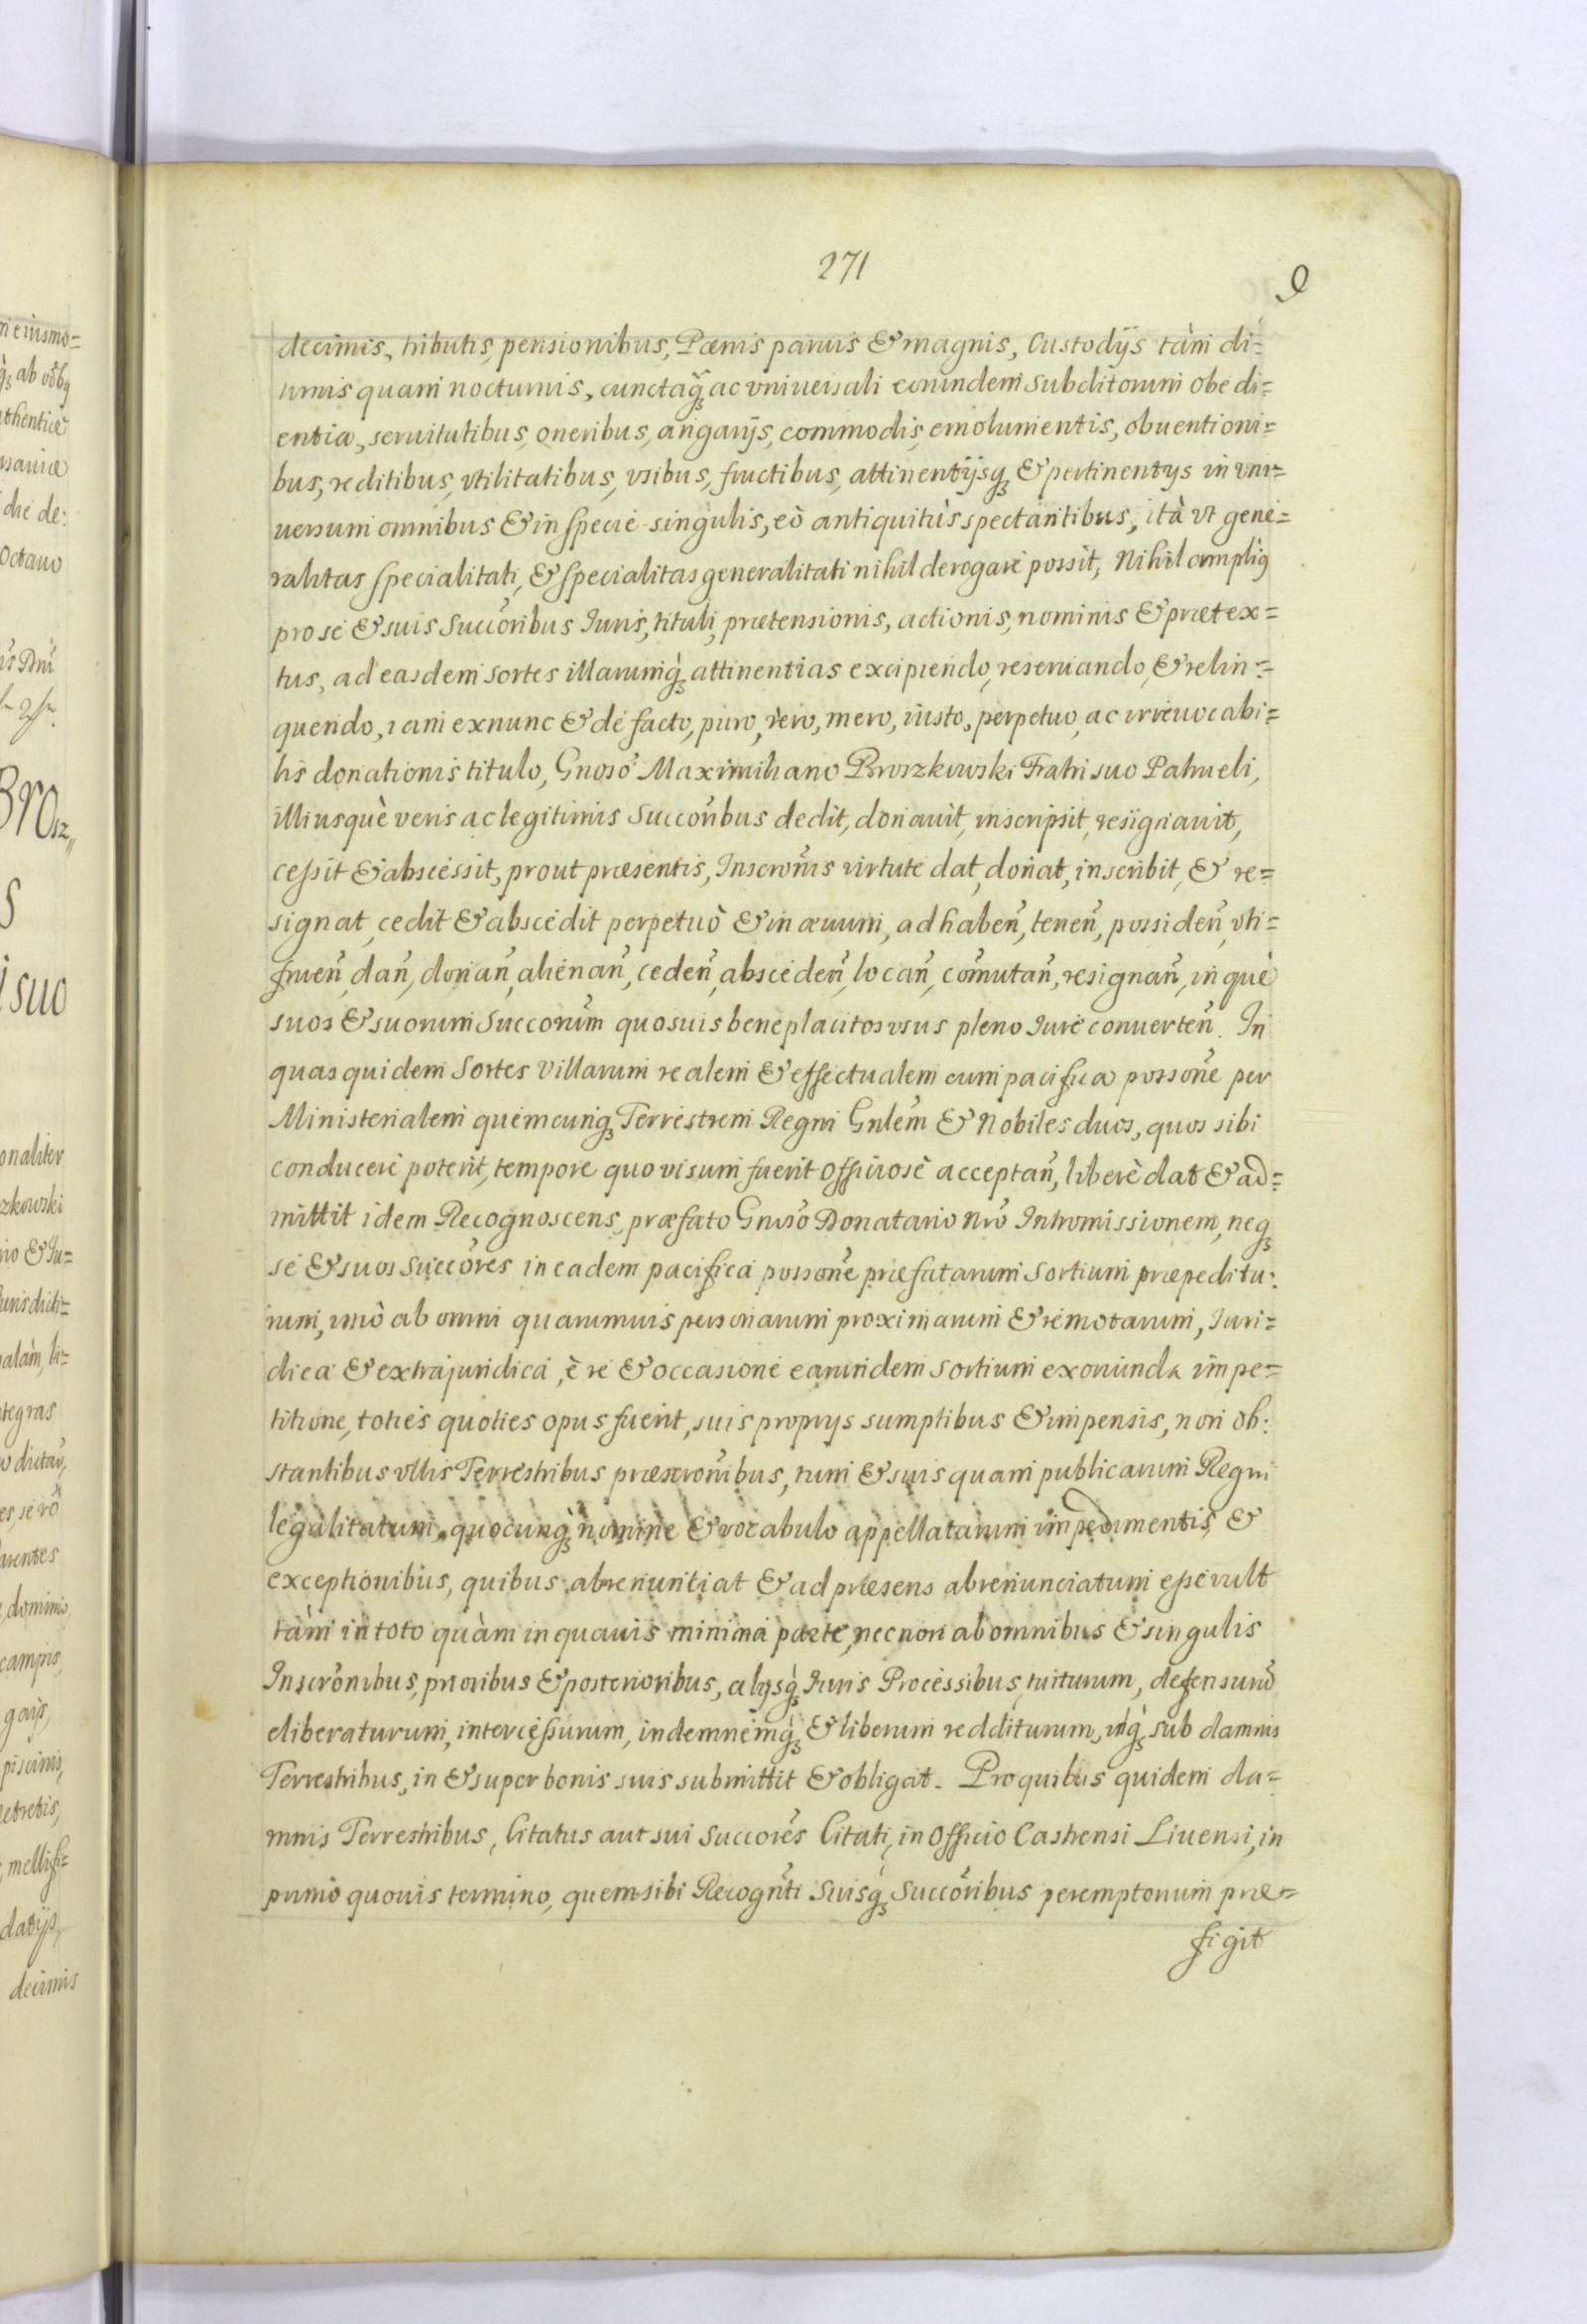 271
9
decimis, tributis, pensionibus, Pænis paruis & magnis, Custodijs tàm di=
urnis quam nocturnis, cunctaq̃ ac vniuersali eorundem subditorum obedi=
entia, seruitutibus, oneribus, angarijs, commodis, emolumentis, obuentioni=
bus, reditibus, vtilitatibus, vsibus, fructibus, attinentijsq́ & pertinentijs in vni=
uersum omnibus & in specie singulis, eò antiquitùs spectantibus, ità vt gene=
ralitas specialitati, & specialitas generalitati nihil derogare possit, Nihil ampliꝰ
pro se & suis Succõribus Iuris, tituli, prætensionis, actionis, nominis & prætex=
tus, ad easdem sortes illarumq́ attinentias excipiendo, reseruando, & relin=
quendo, iam exnunc & de facto, puro, vero, mero, iusto, perpetuo, ac irreuocabi=
lis donationis titulo, Gnoso Maximiliano Broszkowski Fratri suo Patrueli,
illiusquè veris ac legitimis Succoribus dedit, donauit, inscripsit, resignauit,
cessit & abscessit, prout præsentis, Inscronis virtute dat, donat, inscribit, & re=
signat, cedit & abscedit perpetuò & in æuum, ad haben̄, tenen̄, possiden̄, vti=
fruen̄, dan̄, donan̄, alienan̄, ceden̄, absceden̄, locan̄, com̄utan̄, resignan̄, inque
suos & suorum Succorum quosuis beneplacitos vsus pleno Iure conuerten̄. In
quas quidem Sortes Villarum realem & effectualem cum pacifica possone per
Ministerialem quemcunq́ Terrestrem Regni Gnlem & Nobiles duos, quos sibi
conducere poterit, tempore quo visum fuerit officiosè acceptan̄, liberè dat & ad=
mittit idem Recognoscens præfato Gnoso Donatario Nro Intromissionem, neq́
se & suos Succores in eadem pacifica possone præfatarum Sortium præpeditu:
rum, imò ab omni quarumuis personarum proximarum & remotarum, Iuri=
dica & extrajuridica, è re & occasione earundem sortium exoriunda impe=
titione, toties quoties opus fuerit, suis proprijs sumptibus & impensis, non ob:
stantibus vllis Terrestribus præscronibus, tum & suis quam publicarum Regni
legalitatum, quocunq́ nomine & vocabulo appellatarum impedimentis, &
exceptionibus, quibus abrenuntiat & ad præsens abrenunciatum esse vult
tàm in toto quàm in quauis minima parte, nec non ab omnibus & singulis
Inscronibus, prioribus & posterioribus, alijsq́ Iuris Processibus, tuiturum, defensurū
eliberaturum, intercessurum, indemnemq́ & liberum redditurum, idq́ sub damnis
Terrestribus, in & super bonis suis submittit & obligat. Pro quibus quidem da=
mnis Terrestribus, Citatus aut sui Succores Citati, in Officio Castrensi Liuensi, in
primo quouis termino, quem sibi Recognti Suisq́ Succoribus peremptorium præ=
figit